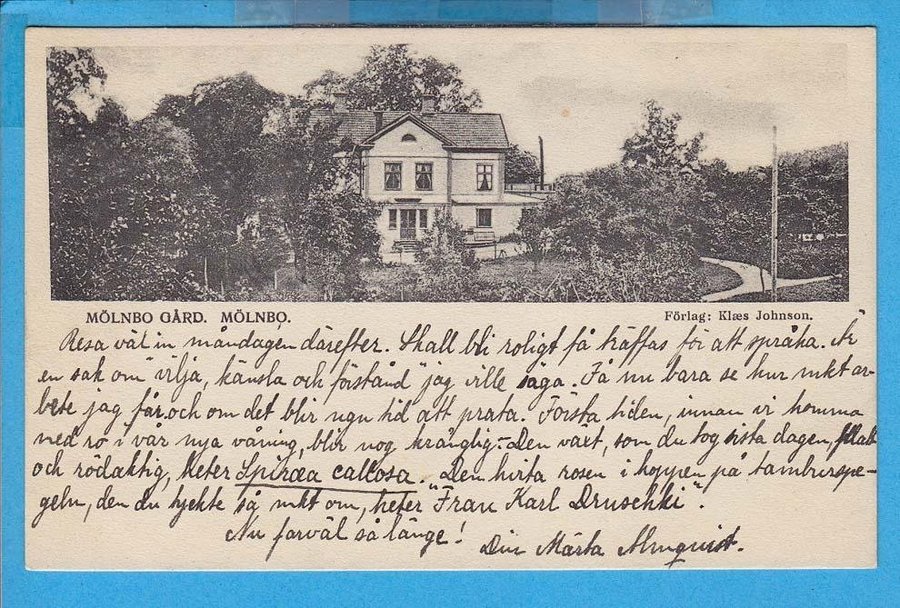 MÖLNBO GÅRD. MÖLNBO.
Förlag: Klæs Johnson.
Resa vät in måndagen därefter. Skall bli roligt få träffas för att språka. Är
en sak om "vilja, känsla och förstånd" jag ville säga. Få nu bara se hur mkt ar-
bete jag får, och om det blir ngn tid att prata. Första tiden, innan vi komma
med ro i vår nya våning, blir nog krånglig. Den växt, som du tog sista dagen,
och rödaktig, heter Spiræa callosa. Den hvita rosen i koppen på tamburspe-
geln, den du tyckte så mkt om, heter "Frau Karl Druschki".
Nu farväl så länge!
Din Märta Almquist.